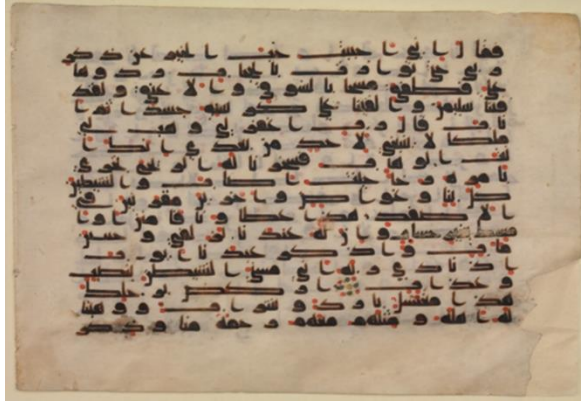 فقال اني احببت حب الخير عن ذكر
ربي حتى توارت بالحجاب ردوها
علي فطفق مسحا بالسوق والاعناق ولقد
فتنا سليمن والقينا على كرسيه جسدا ثم ا
ناب قال رب اغفر لي وهب لي
ملكا لا ينبغي لاحد من بعدي انك ا
نت الوهاب فسخرنا له الريح تجري
بامره رخا حيث اصاب والشيطين
كل بنا وغواص واخرين مقرنين في
الاصفد هذا عطاونا فامنن او ا
مسك بغير حساب وان له عندنا لزلفى وحسن
ماب واذكر عبدنا ايوب
اذ نادى ربه اني مسني الشيطن بنصب
وعذاب اركض برجلك
هذا مغتسل بارد وشراب ووهبنا
له اهله ومثلهم معهم رحمة منا وذكرى